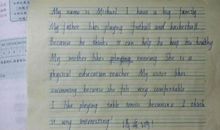 My name is Michael I have a big family
My father likes playing football and basketball
Because he thinks it can help he keep his healthy
My mother likes playing running she is a
physical education teacher My sister likes
swimming because she felt very comfortable
I like playing table tennis because I think
it very interesting